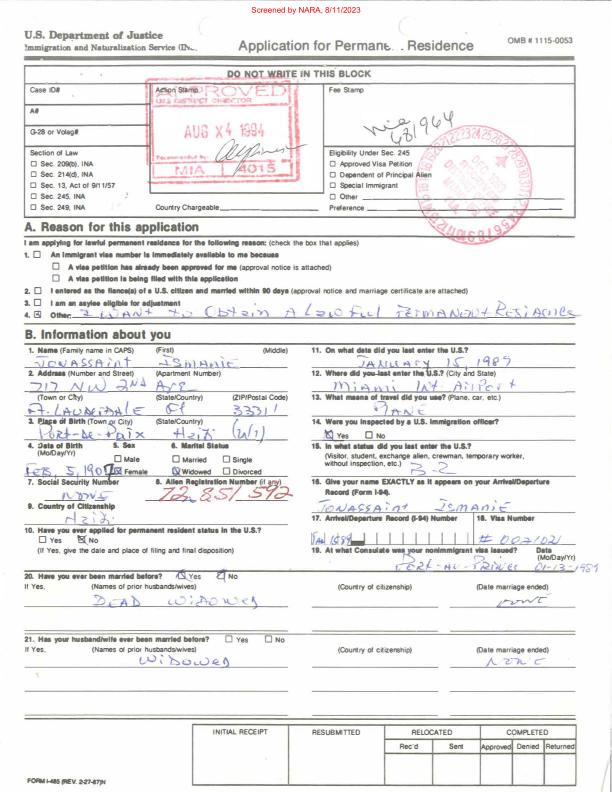 Screened by NARA, 8/11/2023
U.S. Department of Justice
Immigration and Naturalization Service (IN
Application for Permane . . Residence
OMB # 1115-0053
DO NOT WRITE IN THIS BLOCK
Case ID#
Action Stamp
Fee Stamp
APPROVED
DISTRICT DIRECTOR
A#
AUG X4 1994
Mia 681964
G-28 or Volag#
Recommended by:
MIA 4015
Section of Law
Sec. 209(b), INA
Sec. 214(d), INA
Sec. 13, Act of 9/11/57
Sec. 245, INA
Sec. 249, INA
Country Chargeable
Eligibility Under Sec. 245
Approved Visa Petition
Dependent of Principal Alien
Special Immigrant
Other
Preference
A. Reason for this application
I am applying for lawful permanent residence for the following reason: (check the box that applies)
1. An immigrant visa number is immediately available to me because
A visa petition has already been approved for me (approval notice is attached)
A visa petition is being filed with this application
2. I entered as the fiance(e) of a U.S. citizen and married within 90 days (approval notice and marriage certificate are attached)
3. I am an asylee eligible for adjustment
4. Other: I WANT to Obtain A Lawful PERMANENT Residence
B. Information about you
1. Name (Family name in CAPS) (First) (Middle)
JONASSAINT ISMANIE
2. Address (Number and Street) (Apartment Number)
717 NW 2nd Ave
(Town or City) (State/Country) (ZIP/Postal Code)
Ft. LAUDERDALE Fl 33311
3. Place of Birth (Town or City) (State/Country)
Port-De-Paix Haiti (W1)
4. Date of Birth (Mo/Day/Yr) 5. Sex 6. Marital Status
Male Married Single
FEB, 5, 190 Female Widowed Divorced
7. Social Security Number 8. Alien Registration Number (if any)
NONE 72,851,592
9. Country of Citizenship
Haiti
10. Have you ever applied for permanent resident status in the U.S.?
Yes No
(If Yes, give the date and place of filing and final disposition)
11. On what date did you last enter the U.S.?
JANUARY 15, 1989
12. Where did you last enter the U.S.? (City and State)
Miami Int Airport
13. What means of travel did you use? (Plane, car, etc.)
PLANE
14. Were you inspected by a U.S. immigration officer?
Yes No
15. In what status did you last enter the U.S.?
(Visitor, student, exchange alien, crewman, temporary worker, without inspection, etc.)
B-2
16. Give your name EXACTLY as it appears on your Arrival/Departure Record (Form I-94)
JONASSAINT ISMANIE
17. Arrival/Departure Record (I-94) Number 18. Visa Number
# 002102
19. At what Consulate was your nonimmigrant visa issued? Date (Mo/Day/Yr)
PORT-AU-PRINCE 01-13-1989
20. Have you ever been married before? Yes No
If Yes, (Names of prior husbands/wives) (Country of citizenship) (Date marriage ended)
DEAD WIDOWED NONE
21. Has your husband/wife ever been married before? Yes No
If Yes, (Names of prior husbands/wives) (Country of citizenship) (Date marriage ended)
WIDOWED NONE
INITIAL RECEIPT RESUBMITTED RELOCATED COMPLETED
Rec'd Sent Approved Denied Returned
FORM I-485 (REV. 2-27-87)N